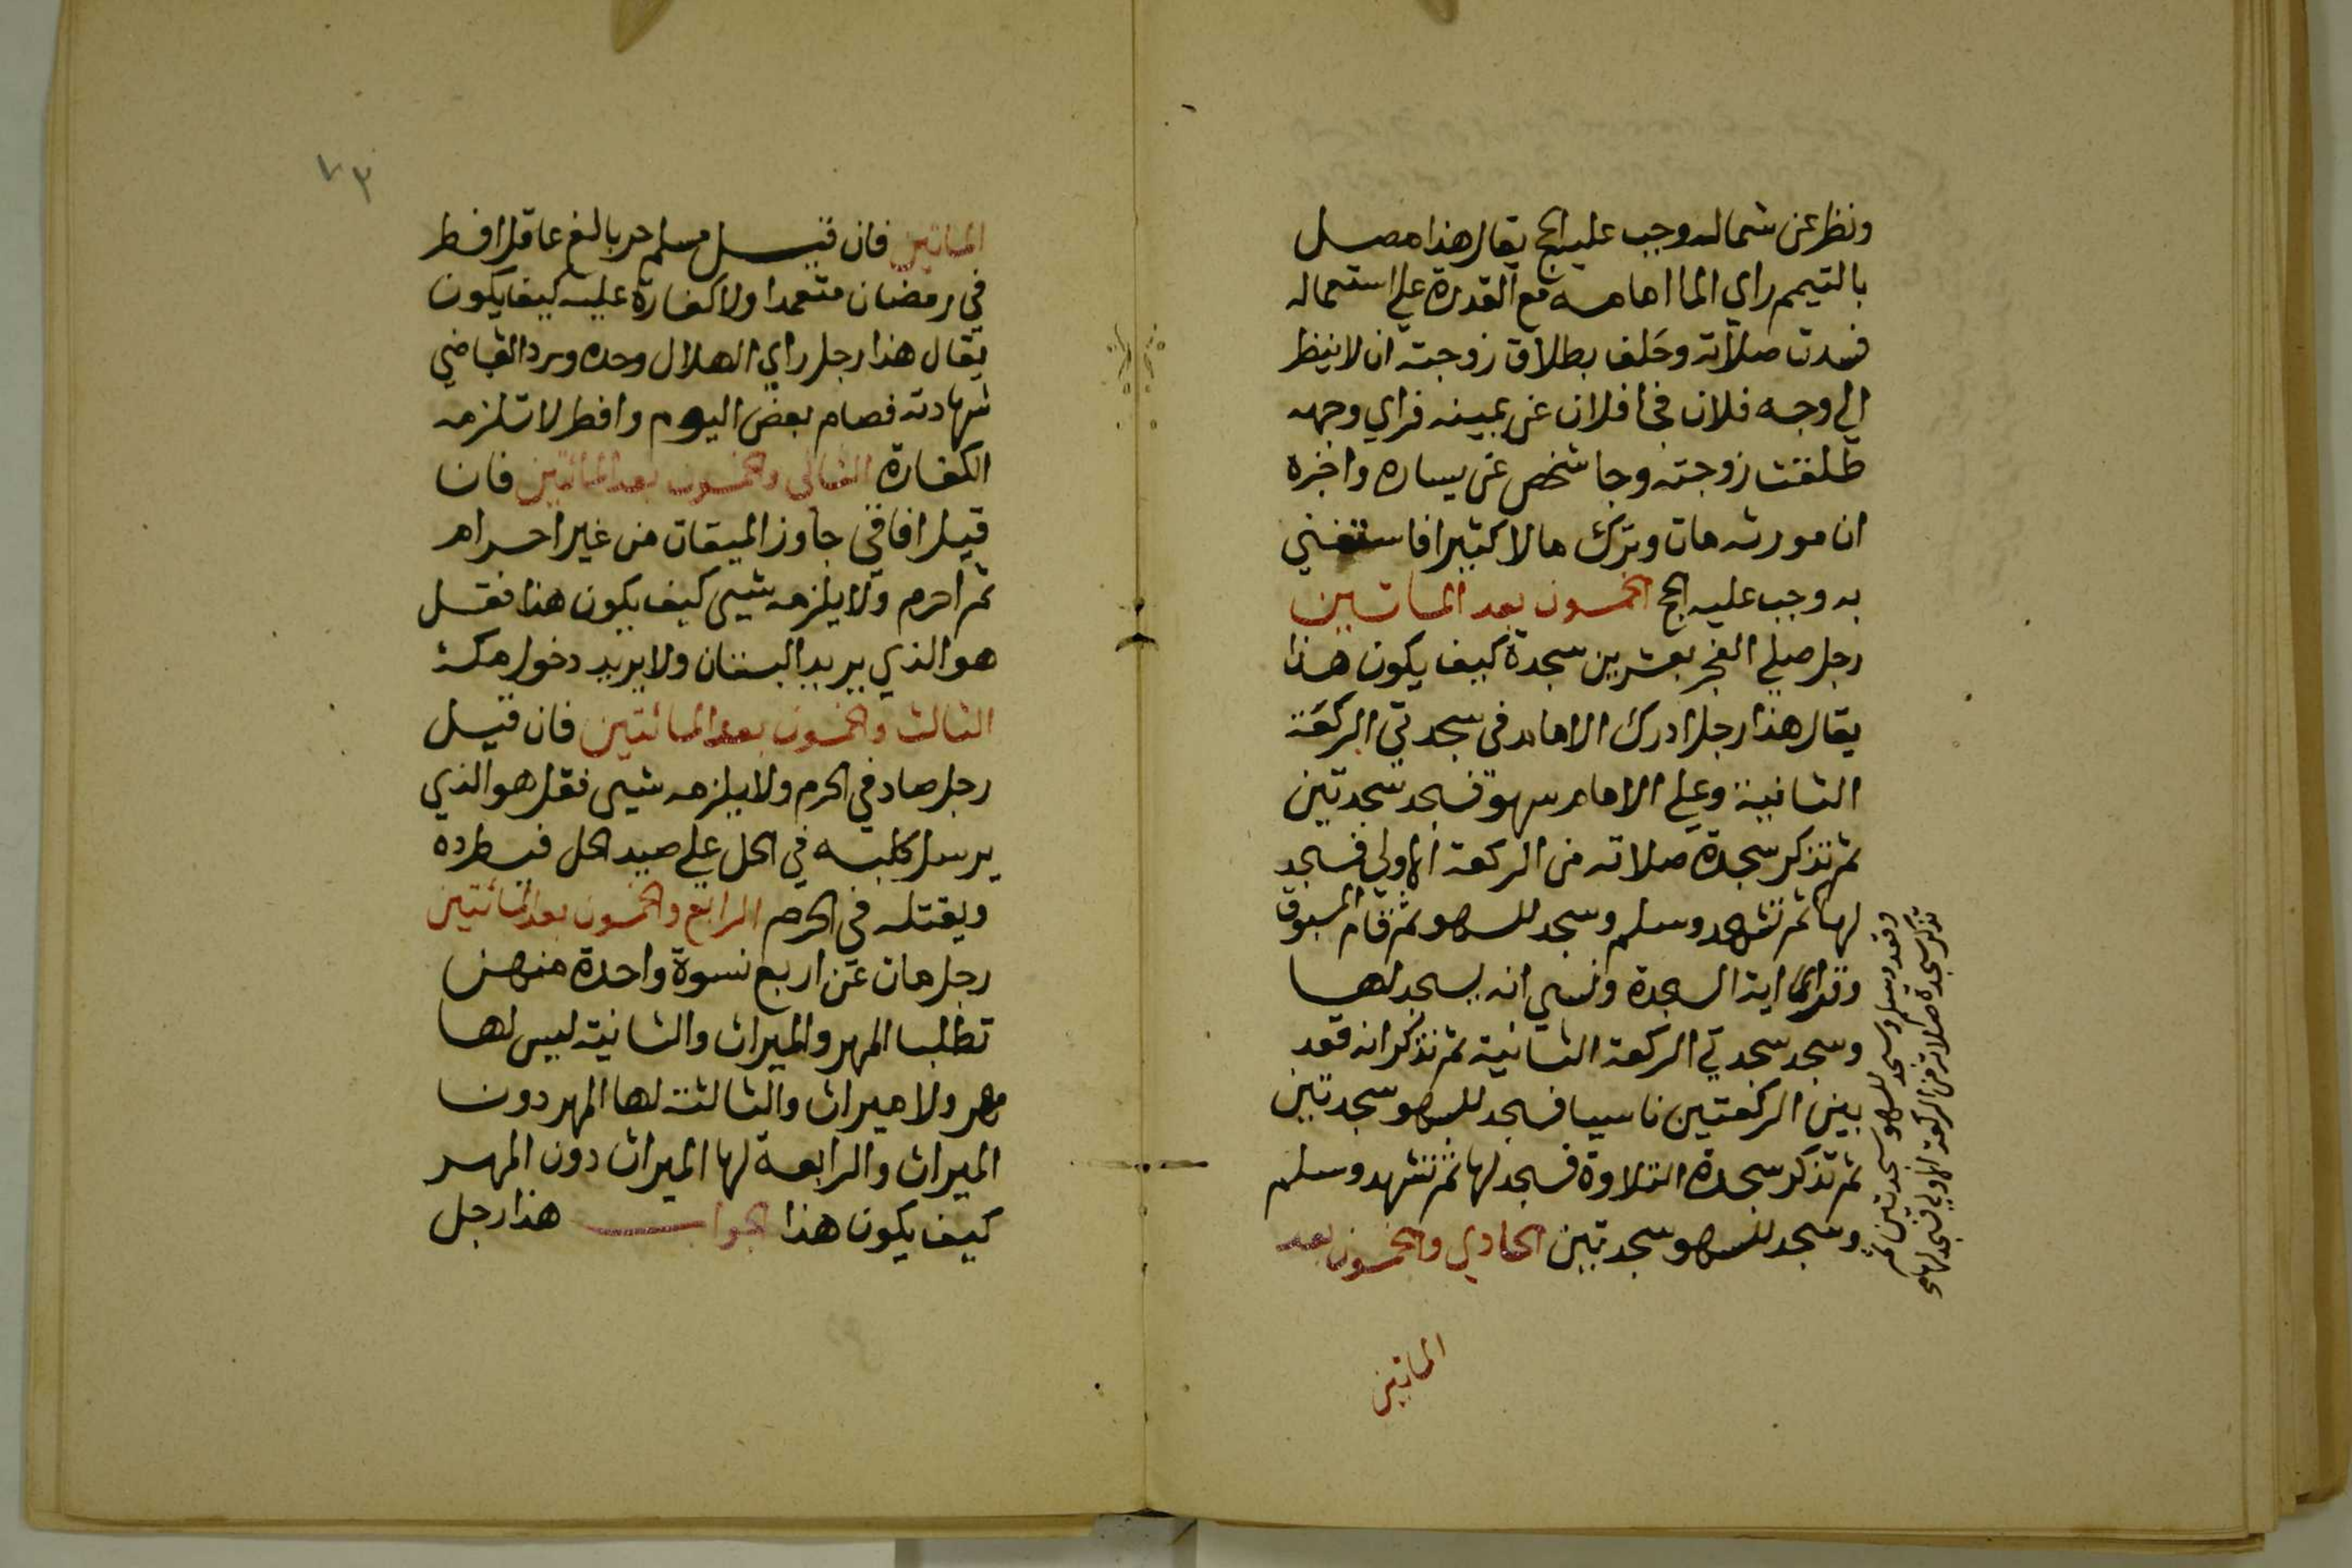 ونظر عن شماله وجب عليه الحج يقال هذا مصل
بالتيمم راي الما امامه مع القدرة علي استعماله
فسدت صلاته وحلف بطلاق زوجته ان لا ينظر
الي وجه فلان فجا فلان عن يمينه فراي وجهه
طلقت زوجته وجا شخص عن يساره واخبره
ان مورثه مات وترك مالا كثيرا فاستغني
به وجب عليه الحج الخمسون بعد الماتين
رجل صلي الفجر بعشرين سجدة كيف يكون هذا
يقال هذا رجل ادرك الامام في سجدتي الركعة
الثانية وعلي الامام سهو فسجد سجدتين
ثم تذكر سجدة صلاته من الركعة الاولي فسجد
لها ثم تشهد وسلم وسجد للسهو ثم قام المسبوق
وقرا اية السجدة ونسي انه يسجد لها
وسجد سجدتي الركعة الثانية ثم تذكر انه قعد
بين الركعتين ناسيا فسجد للسهو سجدتين
ثم تذكر سجدة التلاوة فسجد لها ثم تشهد وسلم
وسجد للسهو سجدتين الحادي والخمسون بعد
الماتين
وقعد وسلم وسجد للسهو سجدتين ثم
تذكر سجدة صلاته من الركعة الاولي فسجد لها
٧٣
الماتين فان قيل مسلم حر بالغ عاقل افطر
في رمضان متعمدا ولا كفارة عليه كيف يكون
يقال هذا رجل راي الهلال وحده ورد القاضي
شهادته فصام بعض اليوم وافطر لا تلزمه
الكفارة الثاني والخمسون بعد المائتين فان
قيل افاقي جاوز الميقات من غير احرام
ثم احرم ولا يلزمه شيى كيف يكون هذا فقل
هو الذي يريد البستان ولا يريد دخول مكة
الثالث والخمسون بعد المائتين فان قيل
رجل صاد في الحرم ولا يلزمه شيى فقل هو الذي
يرسل كلبه في الحل علي صيد الحل فيطرده
ويقتله في الحرم الرابع والخمسون بعد المائتين
رجل مات عن اربع نسوة واحدة منهن
تطلب المهر والميراث والثانية ليس لها
مهر ولا ميراث والثالثة لها المهر دون
الميراث والرابعة لها الميراث دون المهر
كيف يكون هذا الجواب هذا رجل